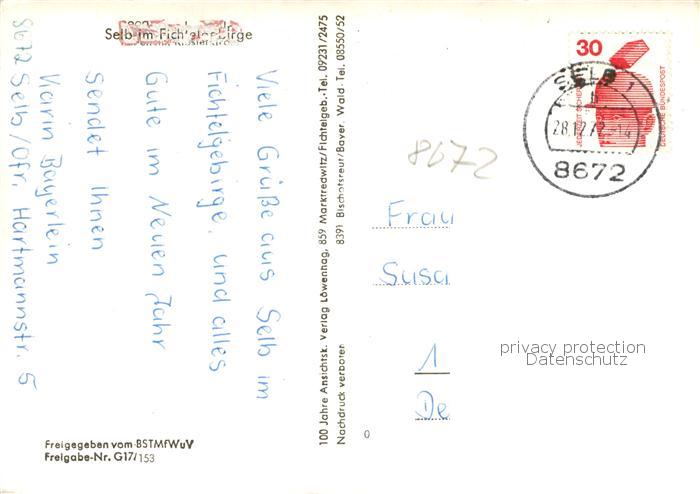 Selb im Fichtelgebirge
Viele Grüße aus Selb im
Fichtelgebirge, und alles
Gute im Neuen Jahr
sendet Ihnen
Karin Bayerlein
8672 Selb/Ofr. Hartmannstr. 5
Freigegeben vom BSTMfWuV
Freigabe-Nr. G17/153
100 Jahre Ansichtsk. Verlag Löwenhag, 859 Marktredwitz/Fichtelgeb.-Tel. 09231/2475
8391 Bischofsreut/Bayer. Wald-Tel. 08550/52
Nachdruck verboten
0
30
JEDERZEIT SICHERHEIT
DEUTSCHE BUNDESPOST
SELB 1
28.12.72-14
8672
8672
Frau
Susa
1
De
privacy protection
Datenschutz